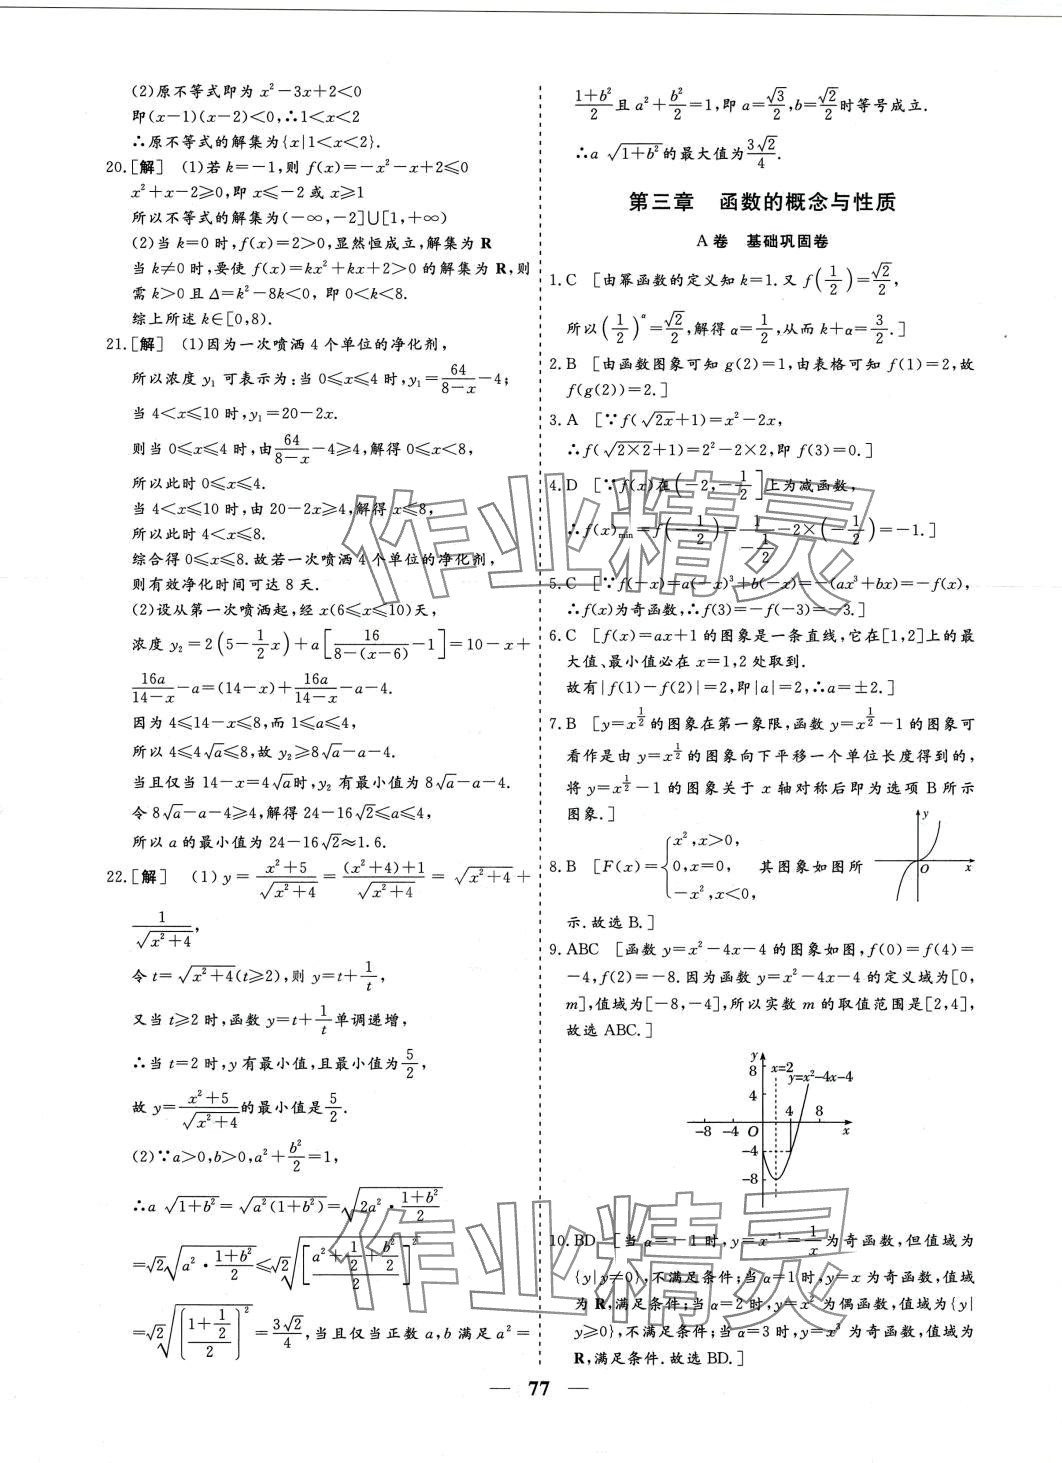 (2)原不等式即为 x²－3x＋2＜0
即(x－1)(x－2)＜0,∴1＜x＜2
∴原不等式的解集为{x|1＜x＜2}.
20.[解]　(1)若 k＝－1,则 f(x)＝－x²－x＋2≤0
x²＋x－2≥0,即 x≤－2 或 x≥1
所以不等式的解集为(－∞,－2]∪[1,＋∞)
(2)当 k＝0 时,f(x)＝2＞0,显然恒成立,解集为 R
当 k≠0 时,要使 f(x)＝kx²＋kx＋2＞0 的解集为 R,则
需 k＞0 且 Δ＝k²－8k＜0, 即 0＜k＜8.
综上所述 k∈[0,8).
21.[解]　(1)因为一次喷洒 4 个单位的净化剂,
所以浓度 y₁ 可表示为:当 0≤x≤4 时,y₁＝64/(8－x)－4;
当 4＜x≤10 时,y₁＝20－2x.
则当 0≤x≤4 时,由 64/(8－x)－4≥4,解得 0≤x＜8,
所以此时 0≤x≤4.
当 4＜x≤10 时,由 20－2x≥4,解得 x≤8,
所以此时 4＜x≤8.
综合得 0≤x≤8.故若一次喷洒 4 个单位的净化剂,
则有效净化时间可达 8 天.
(2)设从第一次喷洒起,经 x(6≤x≤10)天,
浓度 y₂＝2(5－1/2 x)＋a[16/(8－(x－6))－1]＝10－x＋
16a/(14－x)－a＝(14－x)＋16a/(14－x)－a－4.
因为 4≤14－x≤8,而 1≤a≤4,
所以 4≤4√a≤8,故 y₂≥8√a－a－4.
当且仅当 14－x＝4√a时,y₂ 有最小值为 8√a－a－4.
令 8√a－a－4≥4,解得 24－16√2≤a≤4,
所以 a 的最小值为 24－16√2≈1.6.
22.[解]　(1)y＝(x²＋5)/√(x²＋4)＝((x²＋4)＋1)/√(x²＋4)＝√(x²＋4)＋
1/√(x²＋4),
令 t＝√(x²＋4)(t≥2),则 y＝t＋1/t,
又当 t≥2 时,函数 y＝t＋1/t 单调递增,
∴当 t＝2 时,y 有最小值,且最小值为 5/2,
故 y＝(x²＋5)/√(x²＋4)的最小值是 5/2.
(2)∵a＞0,b＞0,a²＋b²/2＝1,
∴a√(1＋b²)＝√(a²(1＋b²))＝√(2a²·(1＋b²)/2)
＝√2√(a²·(1＋b²)/2)≤√2√([(a²＋1/2＋b²/2)/2]²)
＝√2√([(1＋1/2)/2]²)＝3√2/4,当且仅当正数 a,b 满足 a²＝
(1＋b²)/2 且 a²＋b²/2＝1,即 a＝√3/2,b＝√2/2时等号成立.
∴a√(1＋b²)的最大值为 3√2/4.
第三章　函数的概念与性质
A 卷　基础巩固卷
1.C　[由幂函数的定义知 k＝1.又 f(1/2)＝√2/2,
所以(1/2)^α＝√2/2,解得 α＝1/2,从而 k＋α＝3/2.]
2.B　[由函数图象可知 g(2)＝1,由表格可知 f(1)＝2,故
f(g(2))＝2.]
3.A　[∵f(√(2x)＋1)＝x²－2x,
∴f(√(2×2)＋1)＝2²－2×2,即 f(3)＝0.]
4.D　[∵f(x)在(－2,－1/2]上为减函数,
∴f(x)min＝f(－1/2)＝1/(－1/2)－2×(－1/2)＝－1.]
5.C　[∵f(－x)＝a(－x)³＋b(－x)＝－(ax³＋bx)＝－f(x),
∴f(x)为奇函数,∴f(3)＝－f(－3)＝－3.]
6.C　[f(x)＝ax＋1 的图象是一条直线,它在[1,2]上的最
大值、最小值必在 x＝1,2 处取到.
故有|f(1)－f(2)|＝2,即|a|＝2,∴a＝±2.]
7.B　[y＝x^(1/2) 的图象在第一象限,函数 y＝x^(1/2)－1 的图象可
看作是由 y＝x^(1/2) 的图象向下平移一个单位长度得到的,
将 y＝x^(1/2)－1 的图象关于 x 轴对称后即为选项 B所示
图象.]
8.B　[F(x)＝{x²,x＞0, 0,x＝0, －x²,x＜0,　其图象如图所
y
O
x
示.故选 B.]
9.ABC　[函数 y＝x²－4x－4 的图象如图,f(0)＝f(4)＝
－4,f(2)＝－8.因为函数 y＝x²－4x－4 的定义域为[0,
m],值域为[－8,－4],所以实数 m 的取值范围是[2,4],
故选 ABC.]
y
8
x=2
y=x²-4x-4
4
4 8
-8 -4 O x
-4
-8
10.BD　[当 α＝－1 时,y＝x⁻¹＝1/x 为奇函数,但值域为
{y|y≠0},不满足条件;当 α＝1 时,y＝x 为奇函数,值域
为 R,满足条件;当 α＝2 时,y＝x² 为偶函数,值域为{y|
y≥0},不满足条件;当 α＝3 时,y＝x³ 为奇函数,值域为
R,满足条件.故选 BD.]
— 77 —
作业精灵
作业精灵